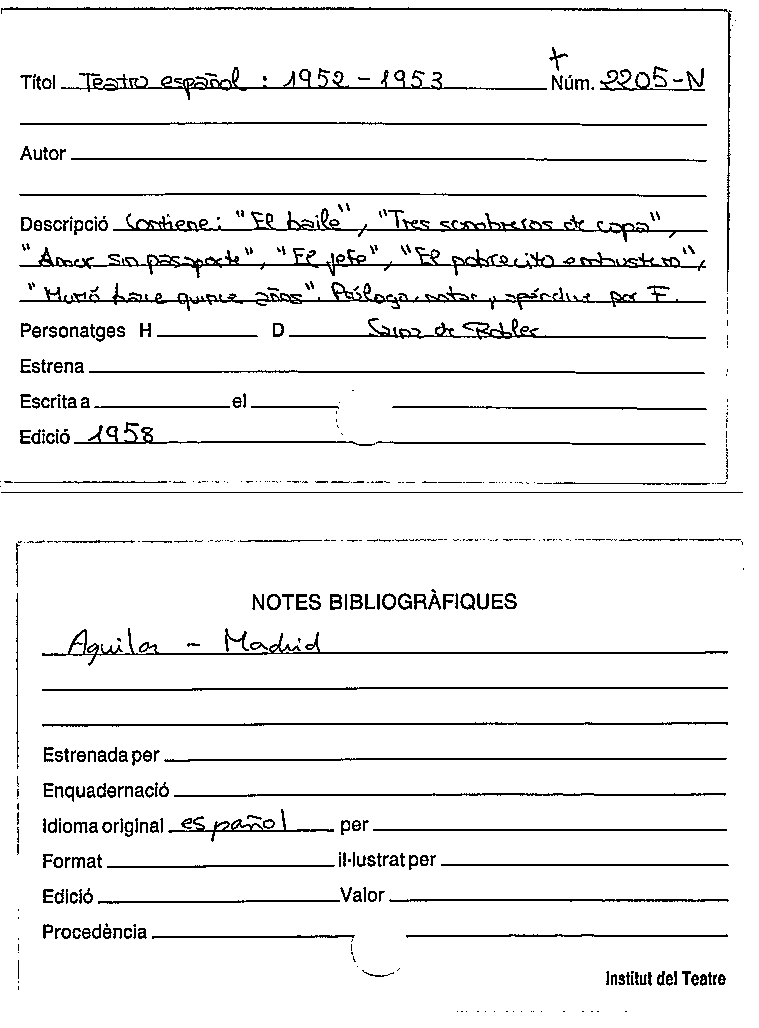 +
Títol Teatro español : 1952 - 1953 Núm. 2205-N
Autor
Descripció Contiene: "El baile", "Tres sombreros de copa",
"Amor sin pasaporte", "El jefe", "El pobrecito embustero",
"Murió hace quince años". Prólogo, notas y apéndice por F.
Personatges H D Sainz de Robles
Estrena
Escrita a el
Edició 1958
NOTES BIBLIOGRÀFIQUES
Aguilar - Madrid
Estrenada per
Enquadernació
Idioma original español per
Format il·lustrat per
Edició Valor
Procedència
Institut del Teatre